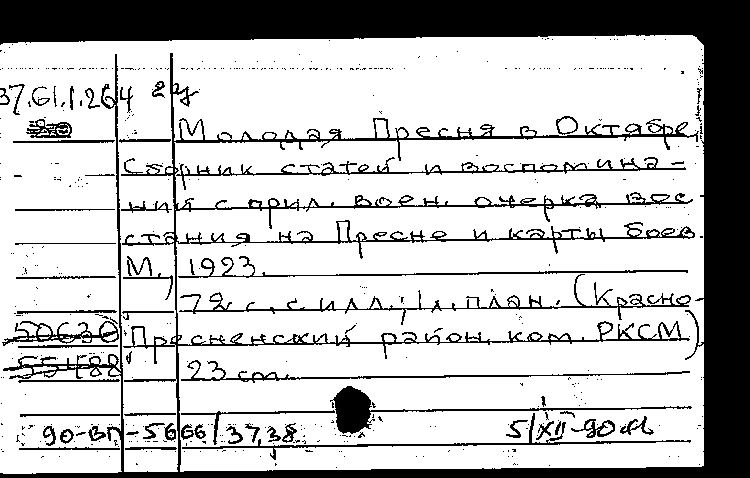 37.61.1.264 2 ц
Молодая Пресня в Октябре.
Сборник статей и воспомина=
ний с прил. воен. очерка вос-
стания на Пресне и карты боев.
М., 1923.
72 с. с илл.; 1 л. план. (Красно-
50630 Пресненский район. ком. РКСМ)
55488 23 см.
90-ВП-5666/37,38 5/XII-90